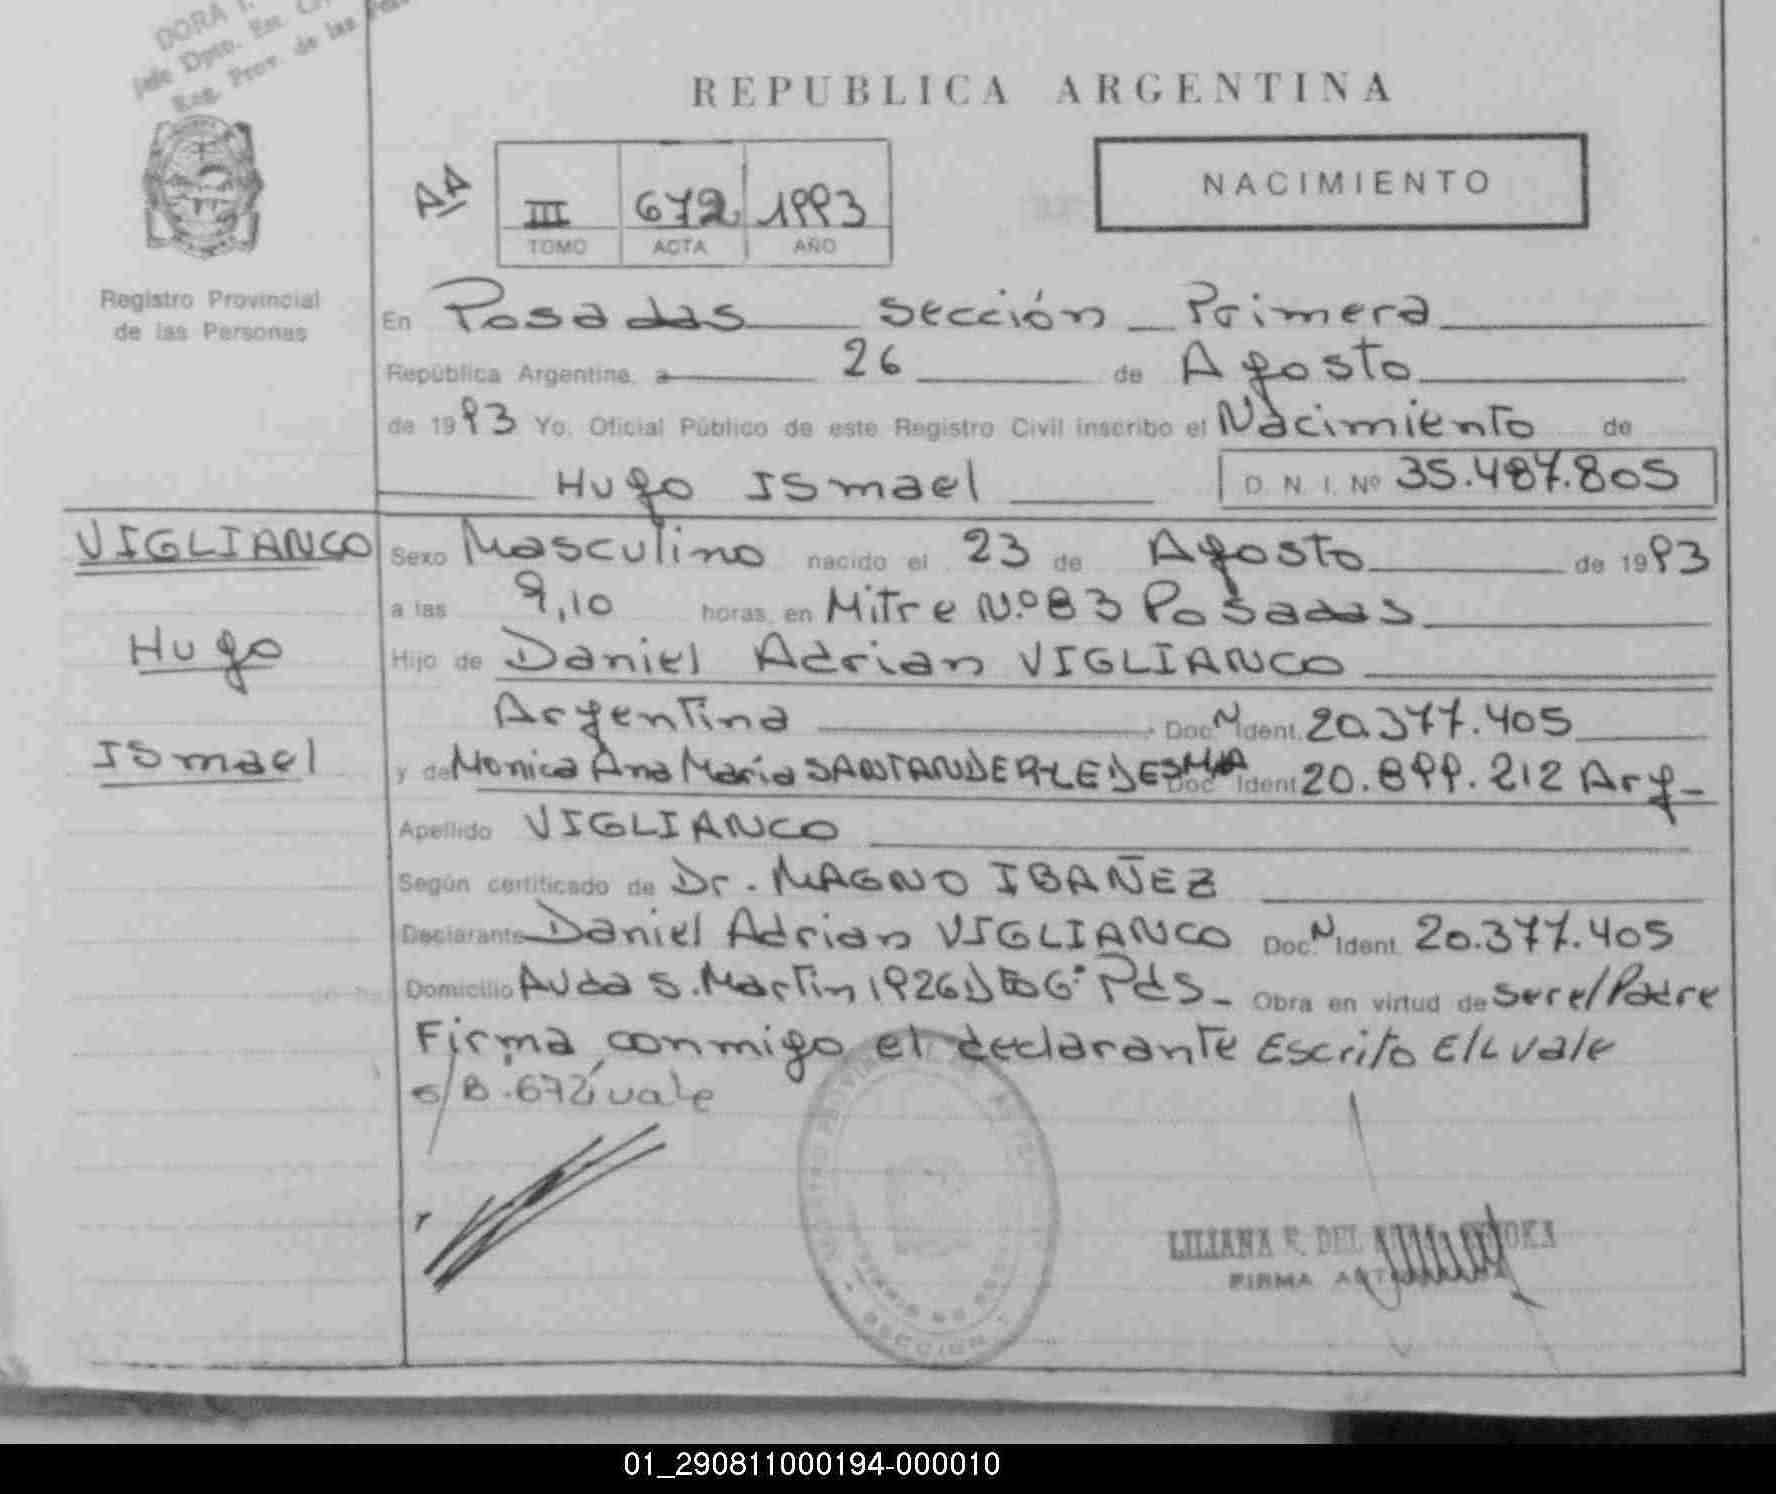 DORA
Jefe Dpto. Est.
Reg. Prov. de las
REPUBLICA ARGENTINA
AA
III 672 1993
TOMO ACTA AÑO
NACIMIENTO
Registro Provincial
de las Personas
En Posadas sección Primera
República Argentina, a 26 de Agosto
de 1993 Yo, Oficial Público de este Registro Civil inscribo el Nacimiento de
Hugo Ismael D. N. I. Nº 35.487.805
VIGLIANCO
Hugo
Ismael
Sexo Masculino nacido el 23 de Agosto de 1993
a las 9,10 horas, en Mitre N.º 83 Posadas
Hijo de Daniel Adrian VIGLIANCO
Argentina Doc. N Ident. 20.377.405
y de Monica Ana Maria SANTANDER LEDESMA Doc. Ident 20.899.212 Arg-
Apellido VIGLIANCO
Según certificado de Dr. MAGNO IBAÑEZ
Declarante Daniel Adrian VIGLIANCO Doc. N Ident. 20.377.405
Domicilio Avda S. Martin 1926 Pds- Obra en virtud de ser el Padre
Firma conmigo el declarante Escrito E/L vale
s/B.672 vale
LILIANA DEL
FIRMA
SECCION
01_290811000194-000010